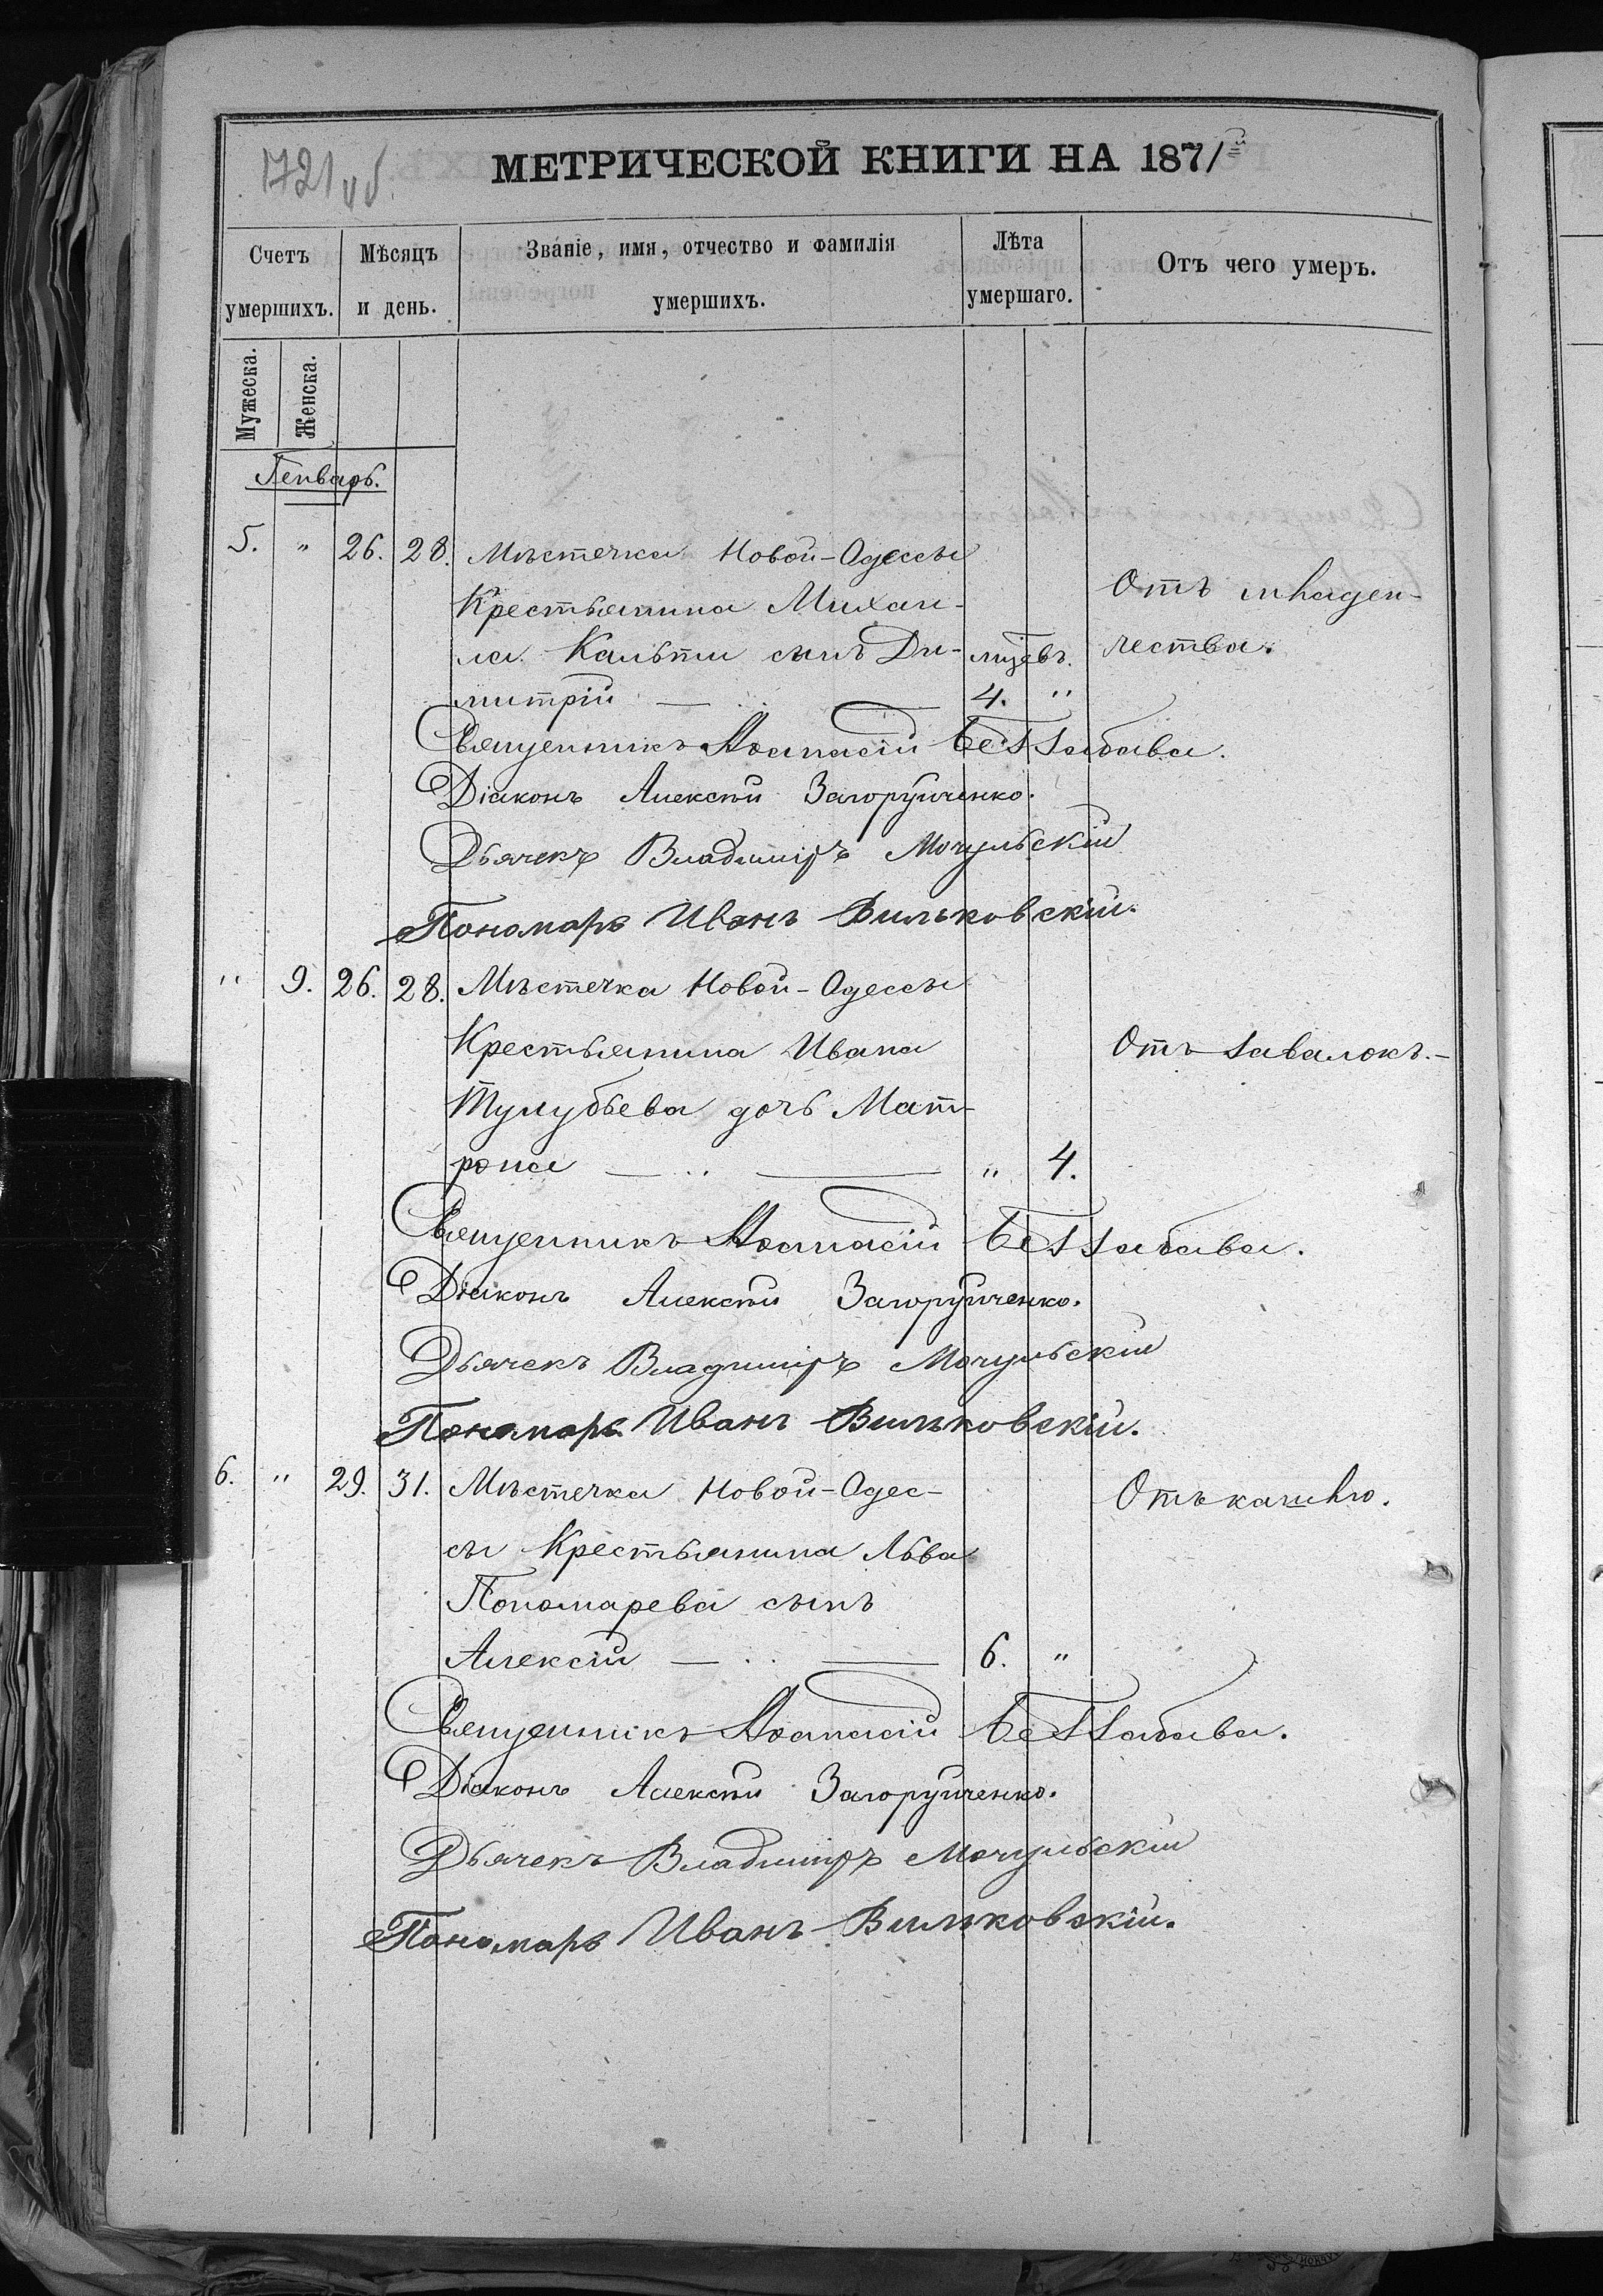 1721 об.
МЕТРИЧЕСКОЙ КНИГИ НА 1871й
Счетъ умершихъ.
Мѣсяцъ и день.
Званіе, имя, отчество и фамилія умершихъ.
Лѣта умершаго.
Отъ чего умеръ.
Мужеска.
Женска.
Генварь.
5. " 26. 28. Мѣстечка Новой-Одессы
Крестьянина Михаи- Отъ младен-
ла Кальти сынъ Ди- мцевъ. чества.
митрій — .. — 4. "
Священникъ Аѳанасій Беззабава.
Діаконъ Алексѣй Загоруйченко.
Дьячекъ Владиміръ Мочульскій
Пономарь Иванъ Вильковскій.
" 9. 26. 28. Мѣстечка Новой-Одессы
Крестьянина Ивана Отъ завалокъ.-
Тулубьева дочь Мат-
рона — .. — " 4.
Священникъ Аѳанасій Беззабава.
Діаконъ Алексѣй Загоруйченко.
Дьячекъ Владиміръ Мочульскій
Пономарь Иванъ Вильковскій.
6. " 29. 31. Мѣстечка Новой-Одес- Отъ кашлю.
сы Крестьянина Льва
Пономарева сынъ
Алексій — .. — 6. "
Священникъ Аѳанасій Беззабава.
Діаконъ Алексѣй Загоруйченко.
Дьячекъ Владиміръ Мочульскій
Пономарь Иванъ Вильковскій.